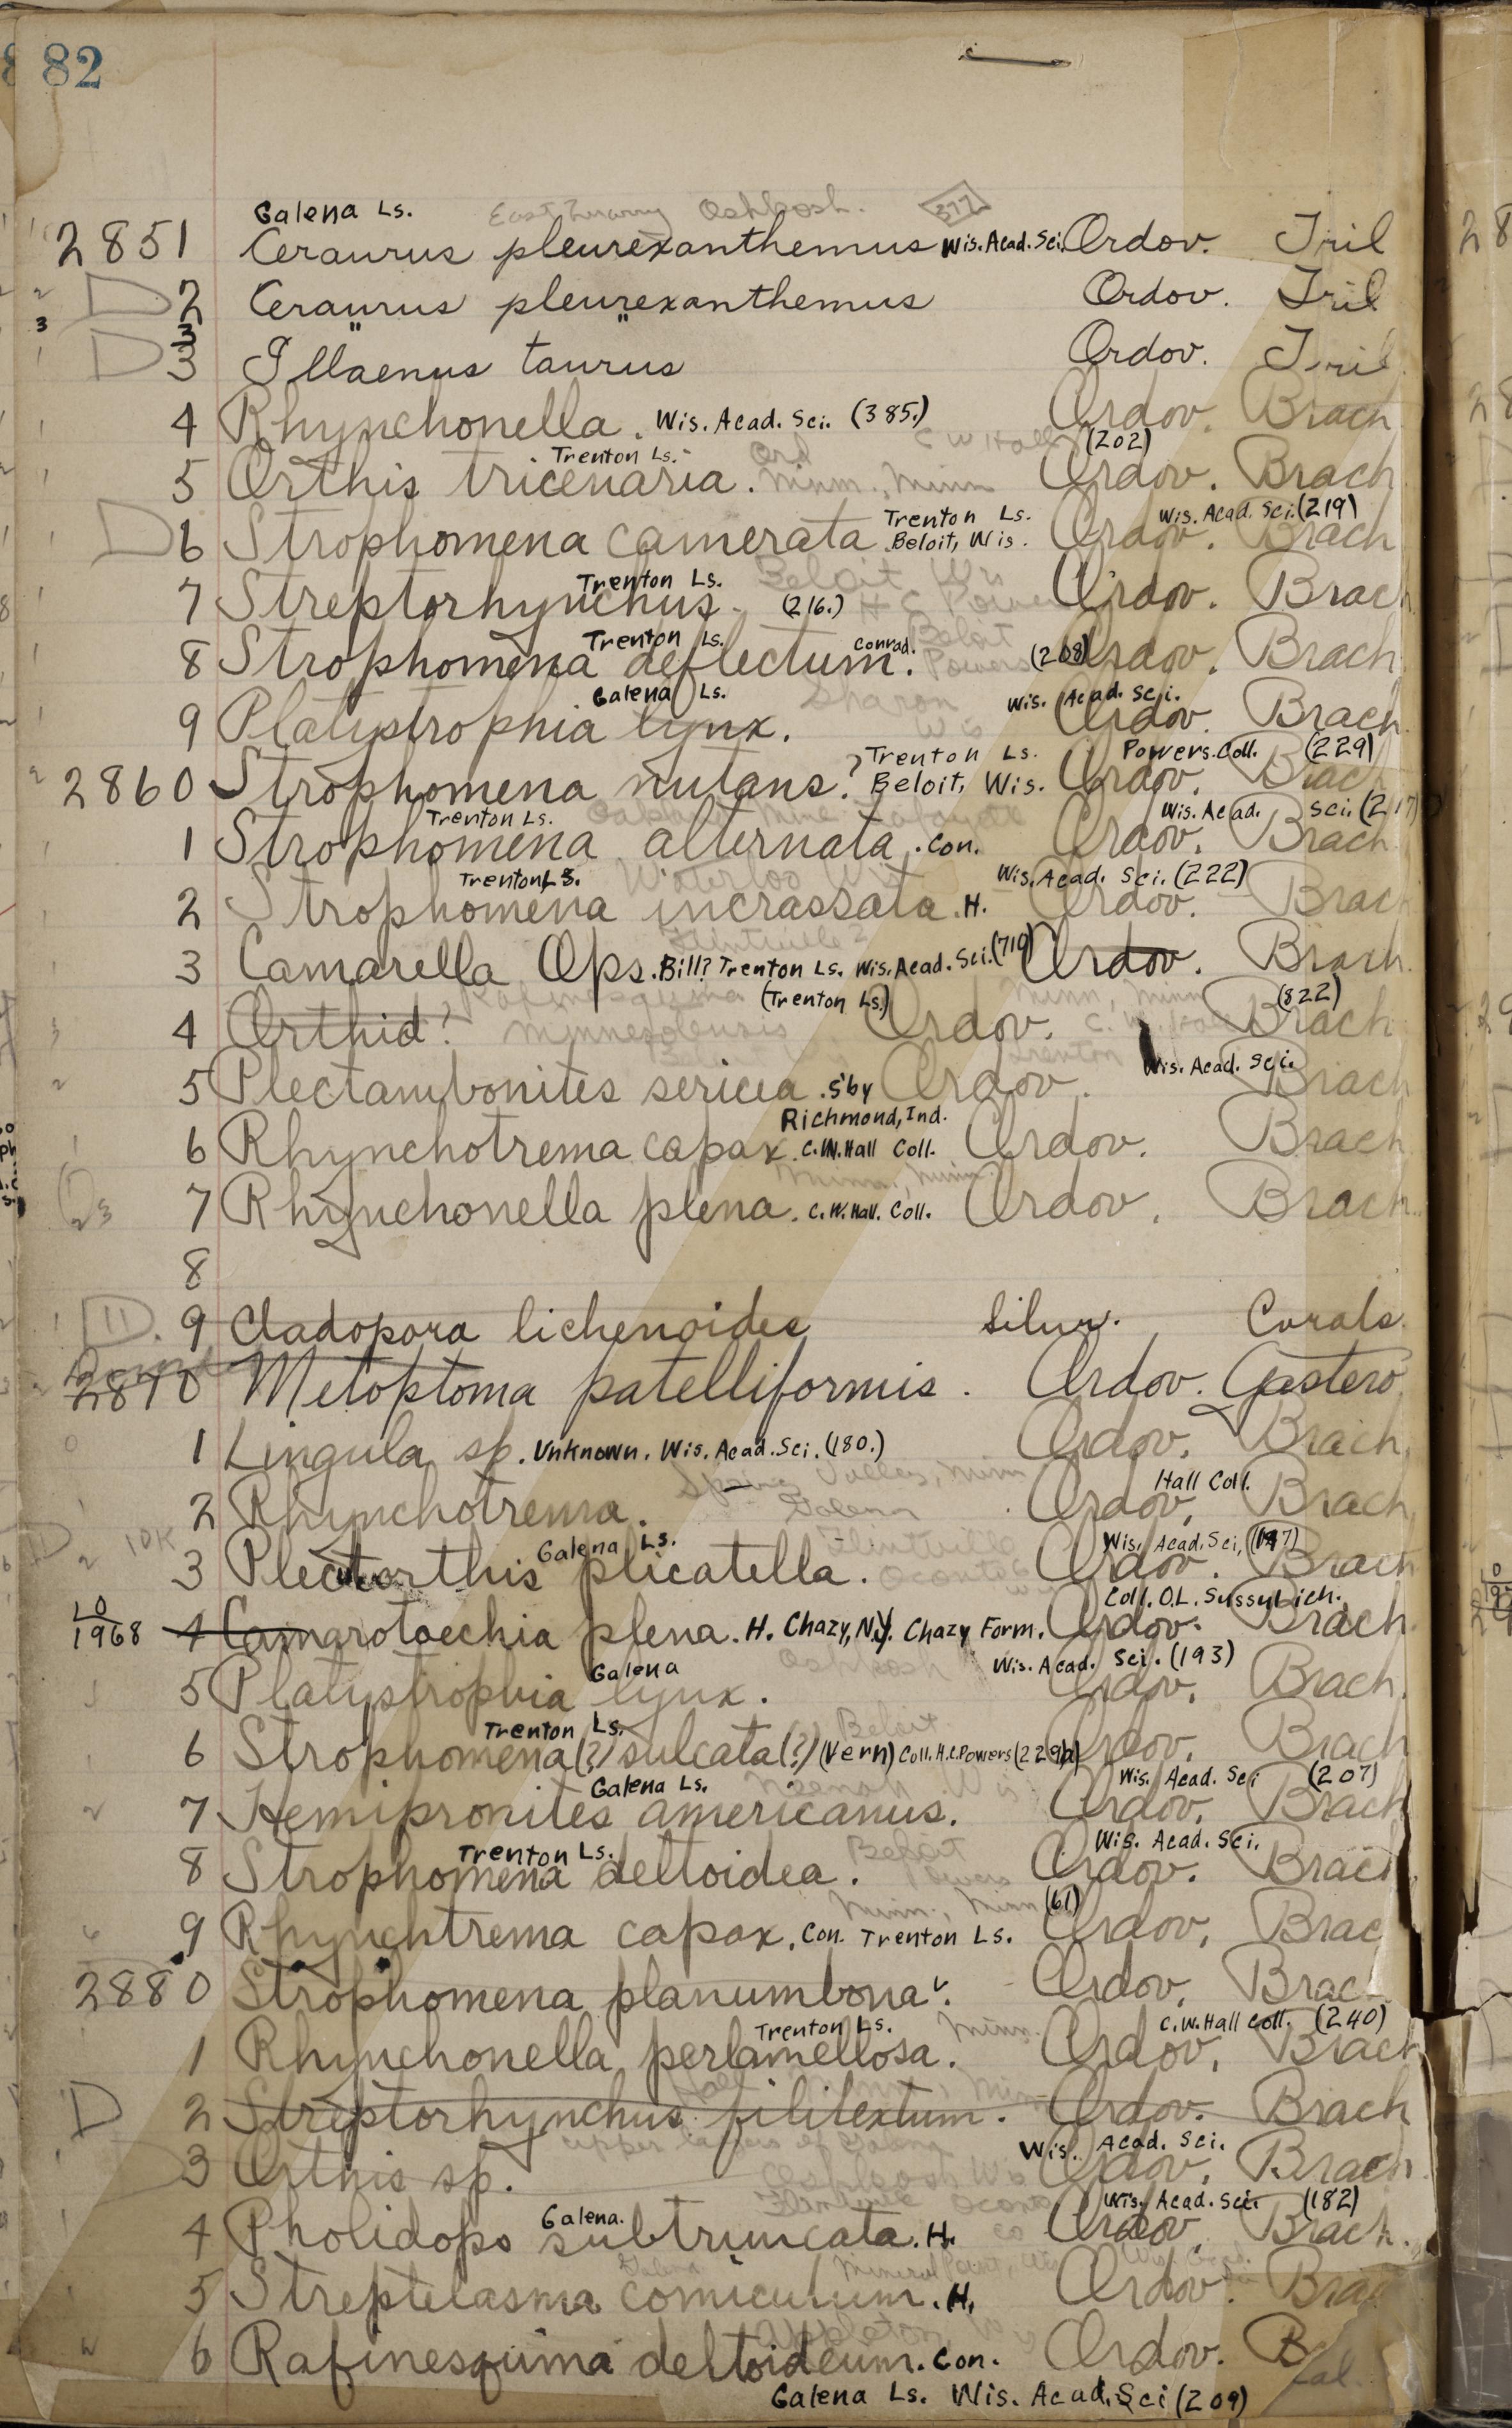 82
Galena Ls. East Quarry Oshkosh. 377
2851 Ceraurus pleurexanthemus Wis. Acad. Sci. Ordov. Tril
2 Ceraurus pleurexanthemus Ordov. Tril
3 Illaenus taurus Ordov. Tril
4 Rhynchonella. Wis. Acad. Sci. (385.) Ordov. Brach
Trenton Ls. C W Hall (202)
5 Orthis tricenaria. Minn., Minn Ordov. Brach
Trenton Ls. Wis. Acad. Sci. (219)
6 Strophomena camerata Beloit, Wis. Ordov. Brach
Trenton Ls. Beloit Wis
7 Streptorhynchus. (216.) H C Powers Ordov. Brach
Trenton Ls. Conrad. Beloit
8 Strophomena deflectum. Powers (208) Ordov. Brach
Galena Ls. Sharon Wis. Acad. Sci.
9 Platystrophia lynx. Wis Ordov. Brach
Trenton Ls. Powers. Coll. (229)
2860 Strophomena nutans? Beloit, Wis. Ordov. Brach
Trenton Ls. Lafayette Wis. Acad. Sci. (217)
1 Strophomena alternata. Con. Ordov. Brach
Trenton Ls. Waterloo Wis Wis. Acad. Sci. (222)
2 Strophomena incrassata. H. Ordov. Brac
Flintville?
3 Camarella Ops. Bill? Trenton Ls. Wis. Acad. Sci. (719) Ordov. Brach.
Rafinesquina (Trenton Ls.) Minn, Minn (822)
4 Orthid? Minnesotensis Ordov. C. W. Hall Brach
Beloit Trenton Wis. Acad. Sci.
5 Plectambonites sericea. S'by Ordov. Brach
Richmond, Ind.
6 Rhynchotrema capax. C. W. Hall Coll. Ordov. Brach
Minn., Minn.
7 Rhynchonella plena. C. W. Hall. Coll. Ordov. Brach
8
D. 9 Cladopora lichenoides Silur. Corals.
2870 Metoptoma patelliformis. Ordov. Gastero
1 Lingula sp. Unknown. Wis. Acad. Sci. (180.) Ordov. Brach.
Spring Valley, Minn Hall Coll.
2 Rhynchotrema. Galena Ordov. Brach
10K Galena Ls. Flintville Wis. Acad. Sci,
3 Plectorthis plicatella. Oconto Co Ordov. Brach
10/1968 Coll. O.L. Syssybich.
4 Camarotoechia plena. H. Chazy, N.Y. Chazy Form. Ordov. Brach.
Galena Oshkosh Wis. Acad. Sci. (193)
5 Platystrophia lynx. Ordov. Brach.
Trenton Ls. Beloit
6 Strophomena (?) sulcata (?) (Vern) Coll. H.C. Powers (229b) Ordov. Brach
Galena Ls. Neenah Wis Wis. Acad. Sci (207)
7 Hemipronites americanus. Ordov. Brach
Trenton Ls. Beloit Wis. Acad. Sci.
8 Strophomena deltoidea. Powers Ordov. Brach
Minn., Minn (61)
9 Rhynchtrema capax. Con. Trenton Ls. Ordov. Brac
2880 Strophomena planumbona. Ordov. Brach
Trenton Ls. Minn. C. W. Hall Coll. (240)
1 Rhynchonella perlamellosa. Ordov. Brach
Hall Minn
D 2 Streptorhynchus filitextum. Ordov. Brach
upper layers of Galena Wis. Acad. Sci.
3 Orthis sp. Oshkosh Wis Ordov. Brach
Galena. Flintville Oconto Co Wis. Acad. Sci. (182)
4 Pholidops subtruncata. H. Ordov. Brach.
Galena Mineral Point, Wis Wis. Acad.
5 Streptelasma corniculum. H. Ordov. Brac
Appleton Wis
6 Rafinesquina deltoideum. Con. Ordov. B
Galena Ls. Wis. Acad. Sci (209)